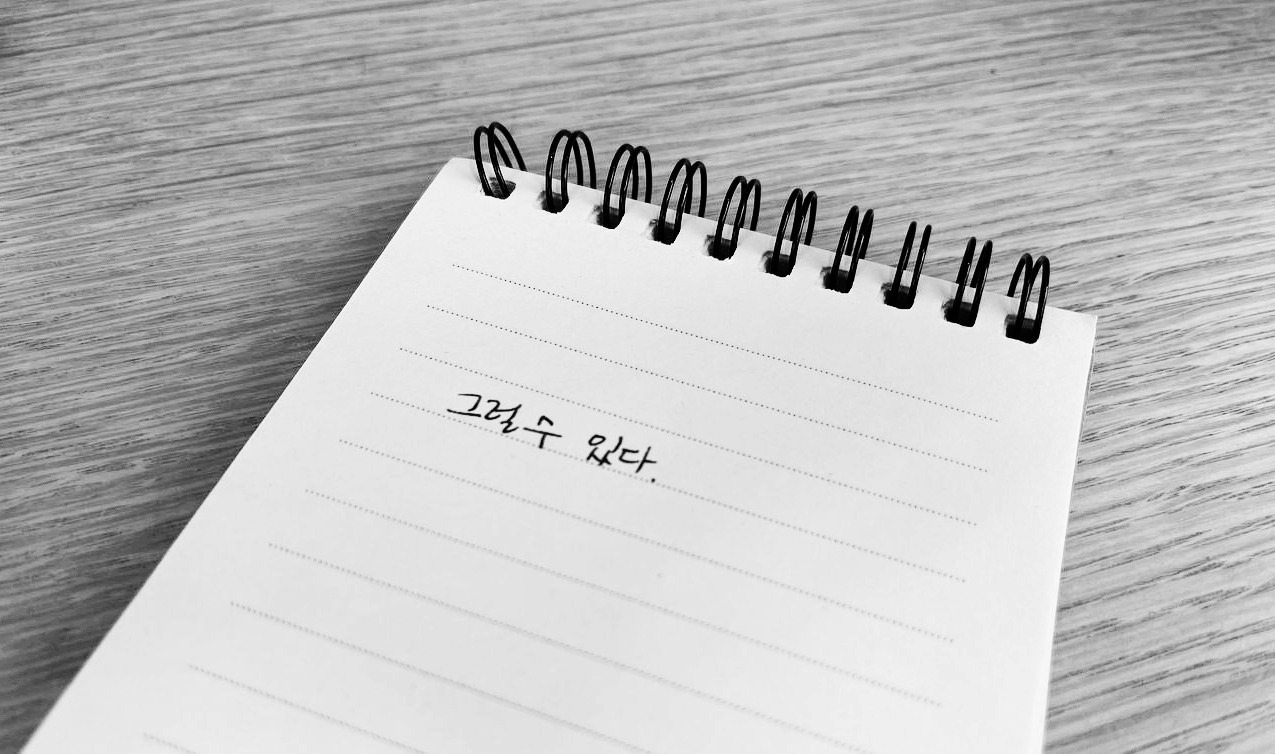 그럴 수 있다.